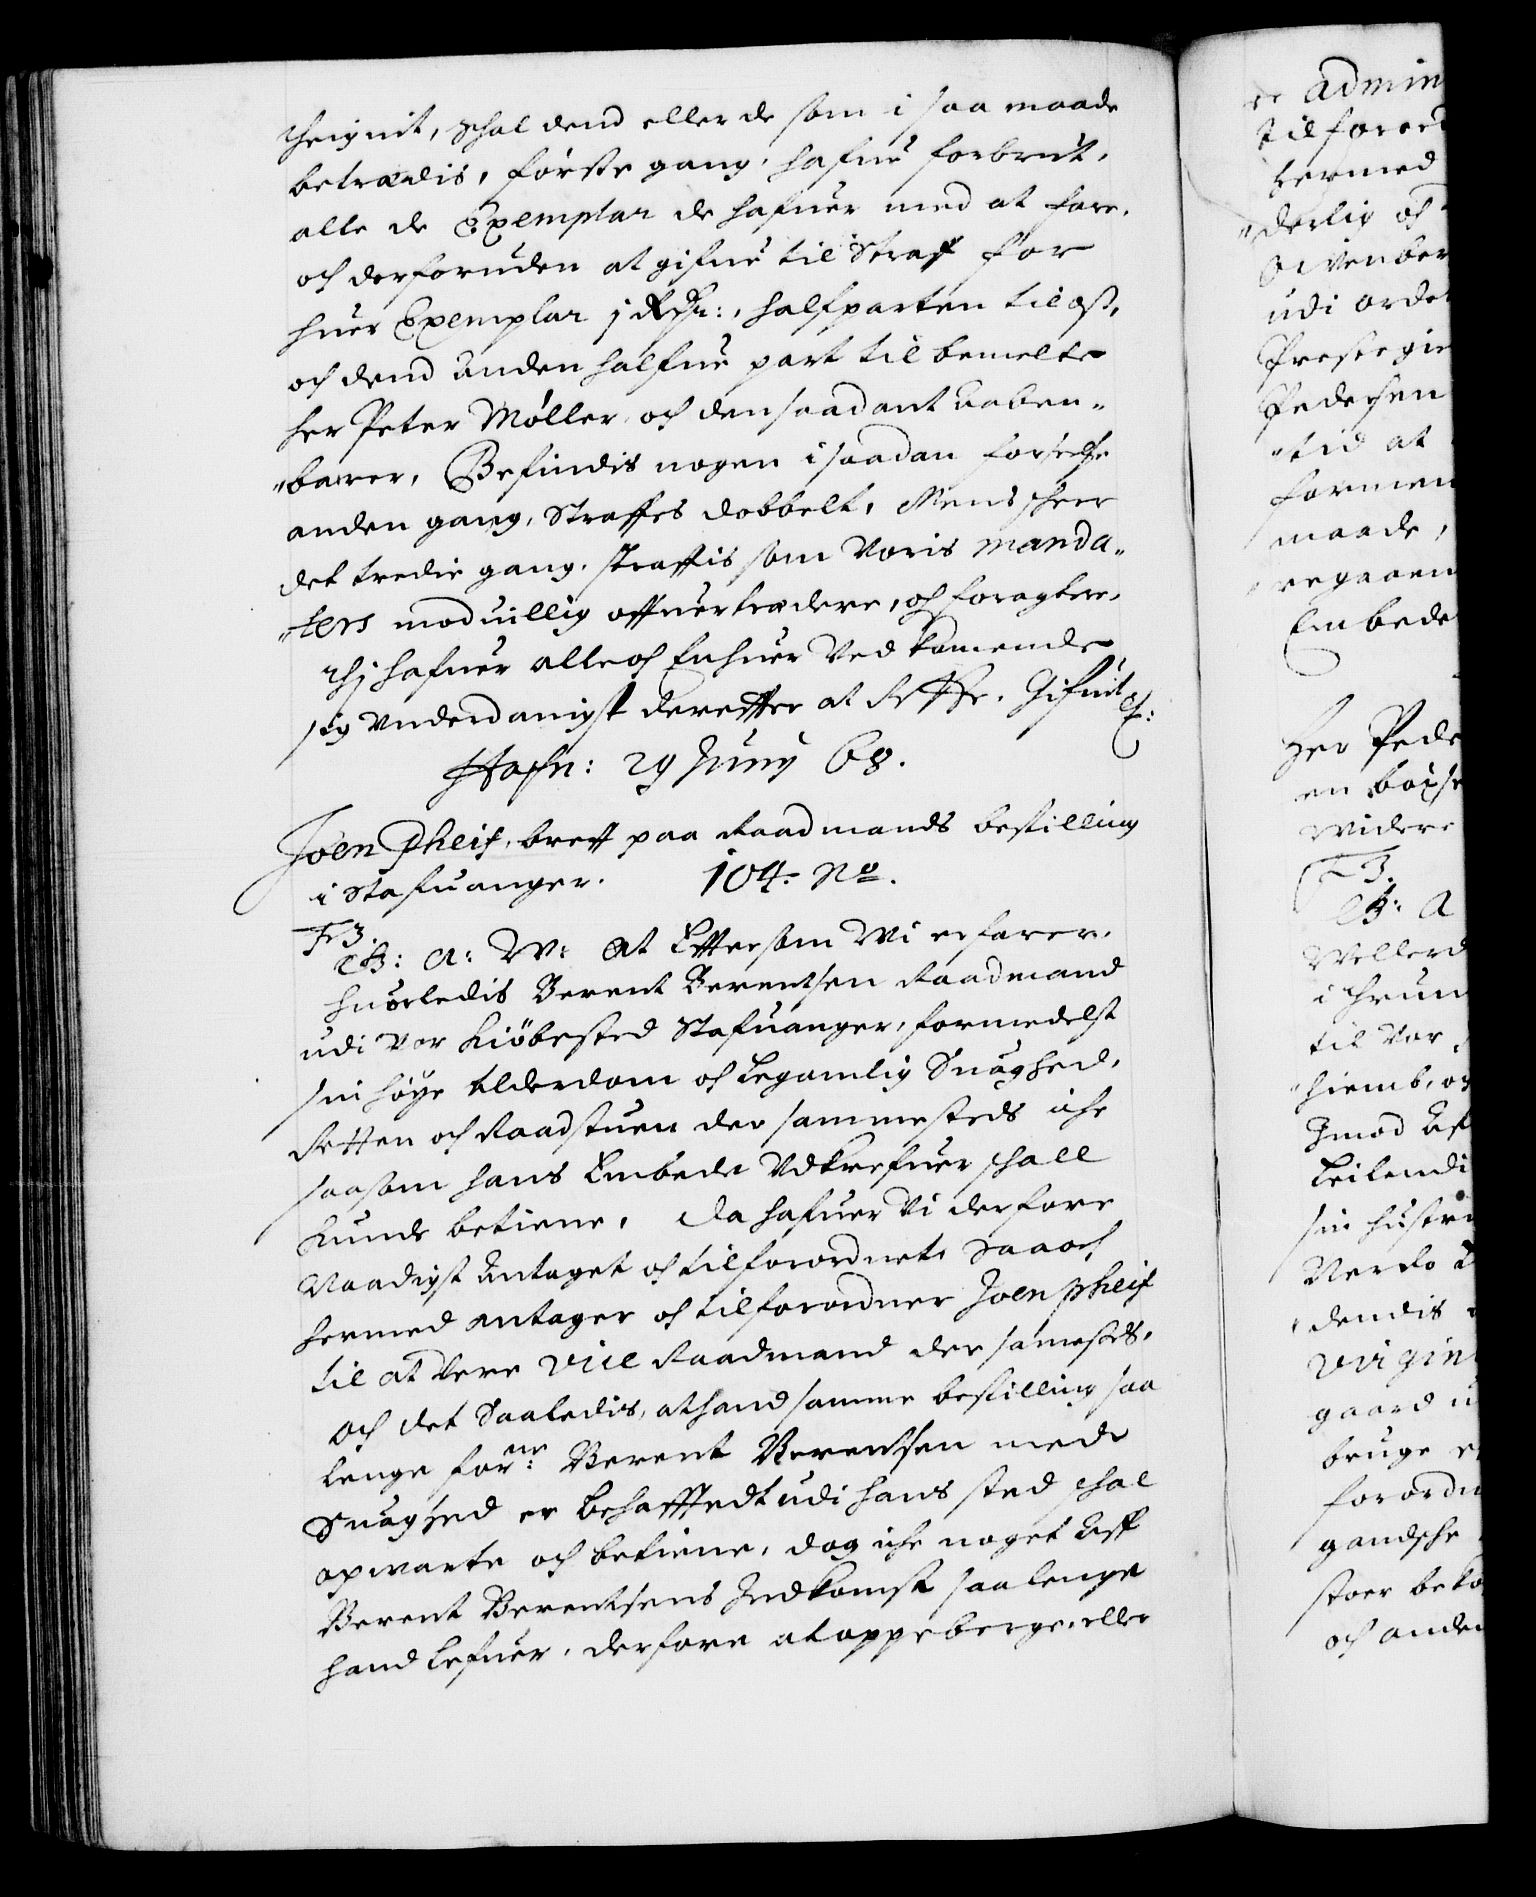 theignit, schal dend eller de som i saa maade
betrædis, første gang, hafue forbrut,
alle de Exemplar de hafuer med at fare,
och derforuden at gifue til Straf for
huer Exemplar j Rdr:, halfparten til oß,
och dend anden halfue part til bemelte
her Peter Møller, och den saadant aaben-
"barer, Befindis nogen i saadan forseelse
anden gang, Straffes dobbelt, Mens scheer
det tredie gang, straffis som Voris manda-
"ters moduillig offuertrædere, och foragtere,
Thj hafuer alle och Enhuer Vedkommende
sig Vnderdanigst derefter at rette. Gifuit etc:
Hafn: 29 Junij 68.
Joen Pheif, breff paa Raadmands bestilling
i Stafuanger. 104. No.
F3.
C5: A: W: At Eftersom Wi erfarer,
huorledis Berent Berentsen Raadmand
udi Vor Kiöbested Stafuanger, formedelst
sin høye Alderdom och Legomlig Suaghed,
Retten och Raadstuen der sammesteds iche
saasom hans Embede Vdkrefuer schall
kunde betiene, da hafuer Vi derfore
Naadigst Antaget och tilforordnet, Saa och
hermed antager och tilforordner Joen Pheif
til at Vere Vice Raadmand der samesteds,
Och det Saaledis, at hand samme bestilling saa
lenge forne: Berent Berentsen med
Suaghed er behefftedt udi hans sted schal
opwarte och betiene, dog iche noget Aff
Berent Berentsens Indkomst saa lenge
hand Lefuer, derfore at oppeberge, eller
re admin
tilforor
hermed
"derlig och
udi orde
Preste gie
Pedersen
"tid at
formen
maade,
Embede
Her Pede
en bois
Widere
F3.
C5: A
Wellerd
i Thrun
til Vor
hiemb, o
Imod
Leilendi
sin hustru
dendis
Virgin
gaard u
bruge
forordn
gandsche
stoer beko
och anden